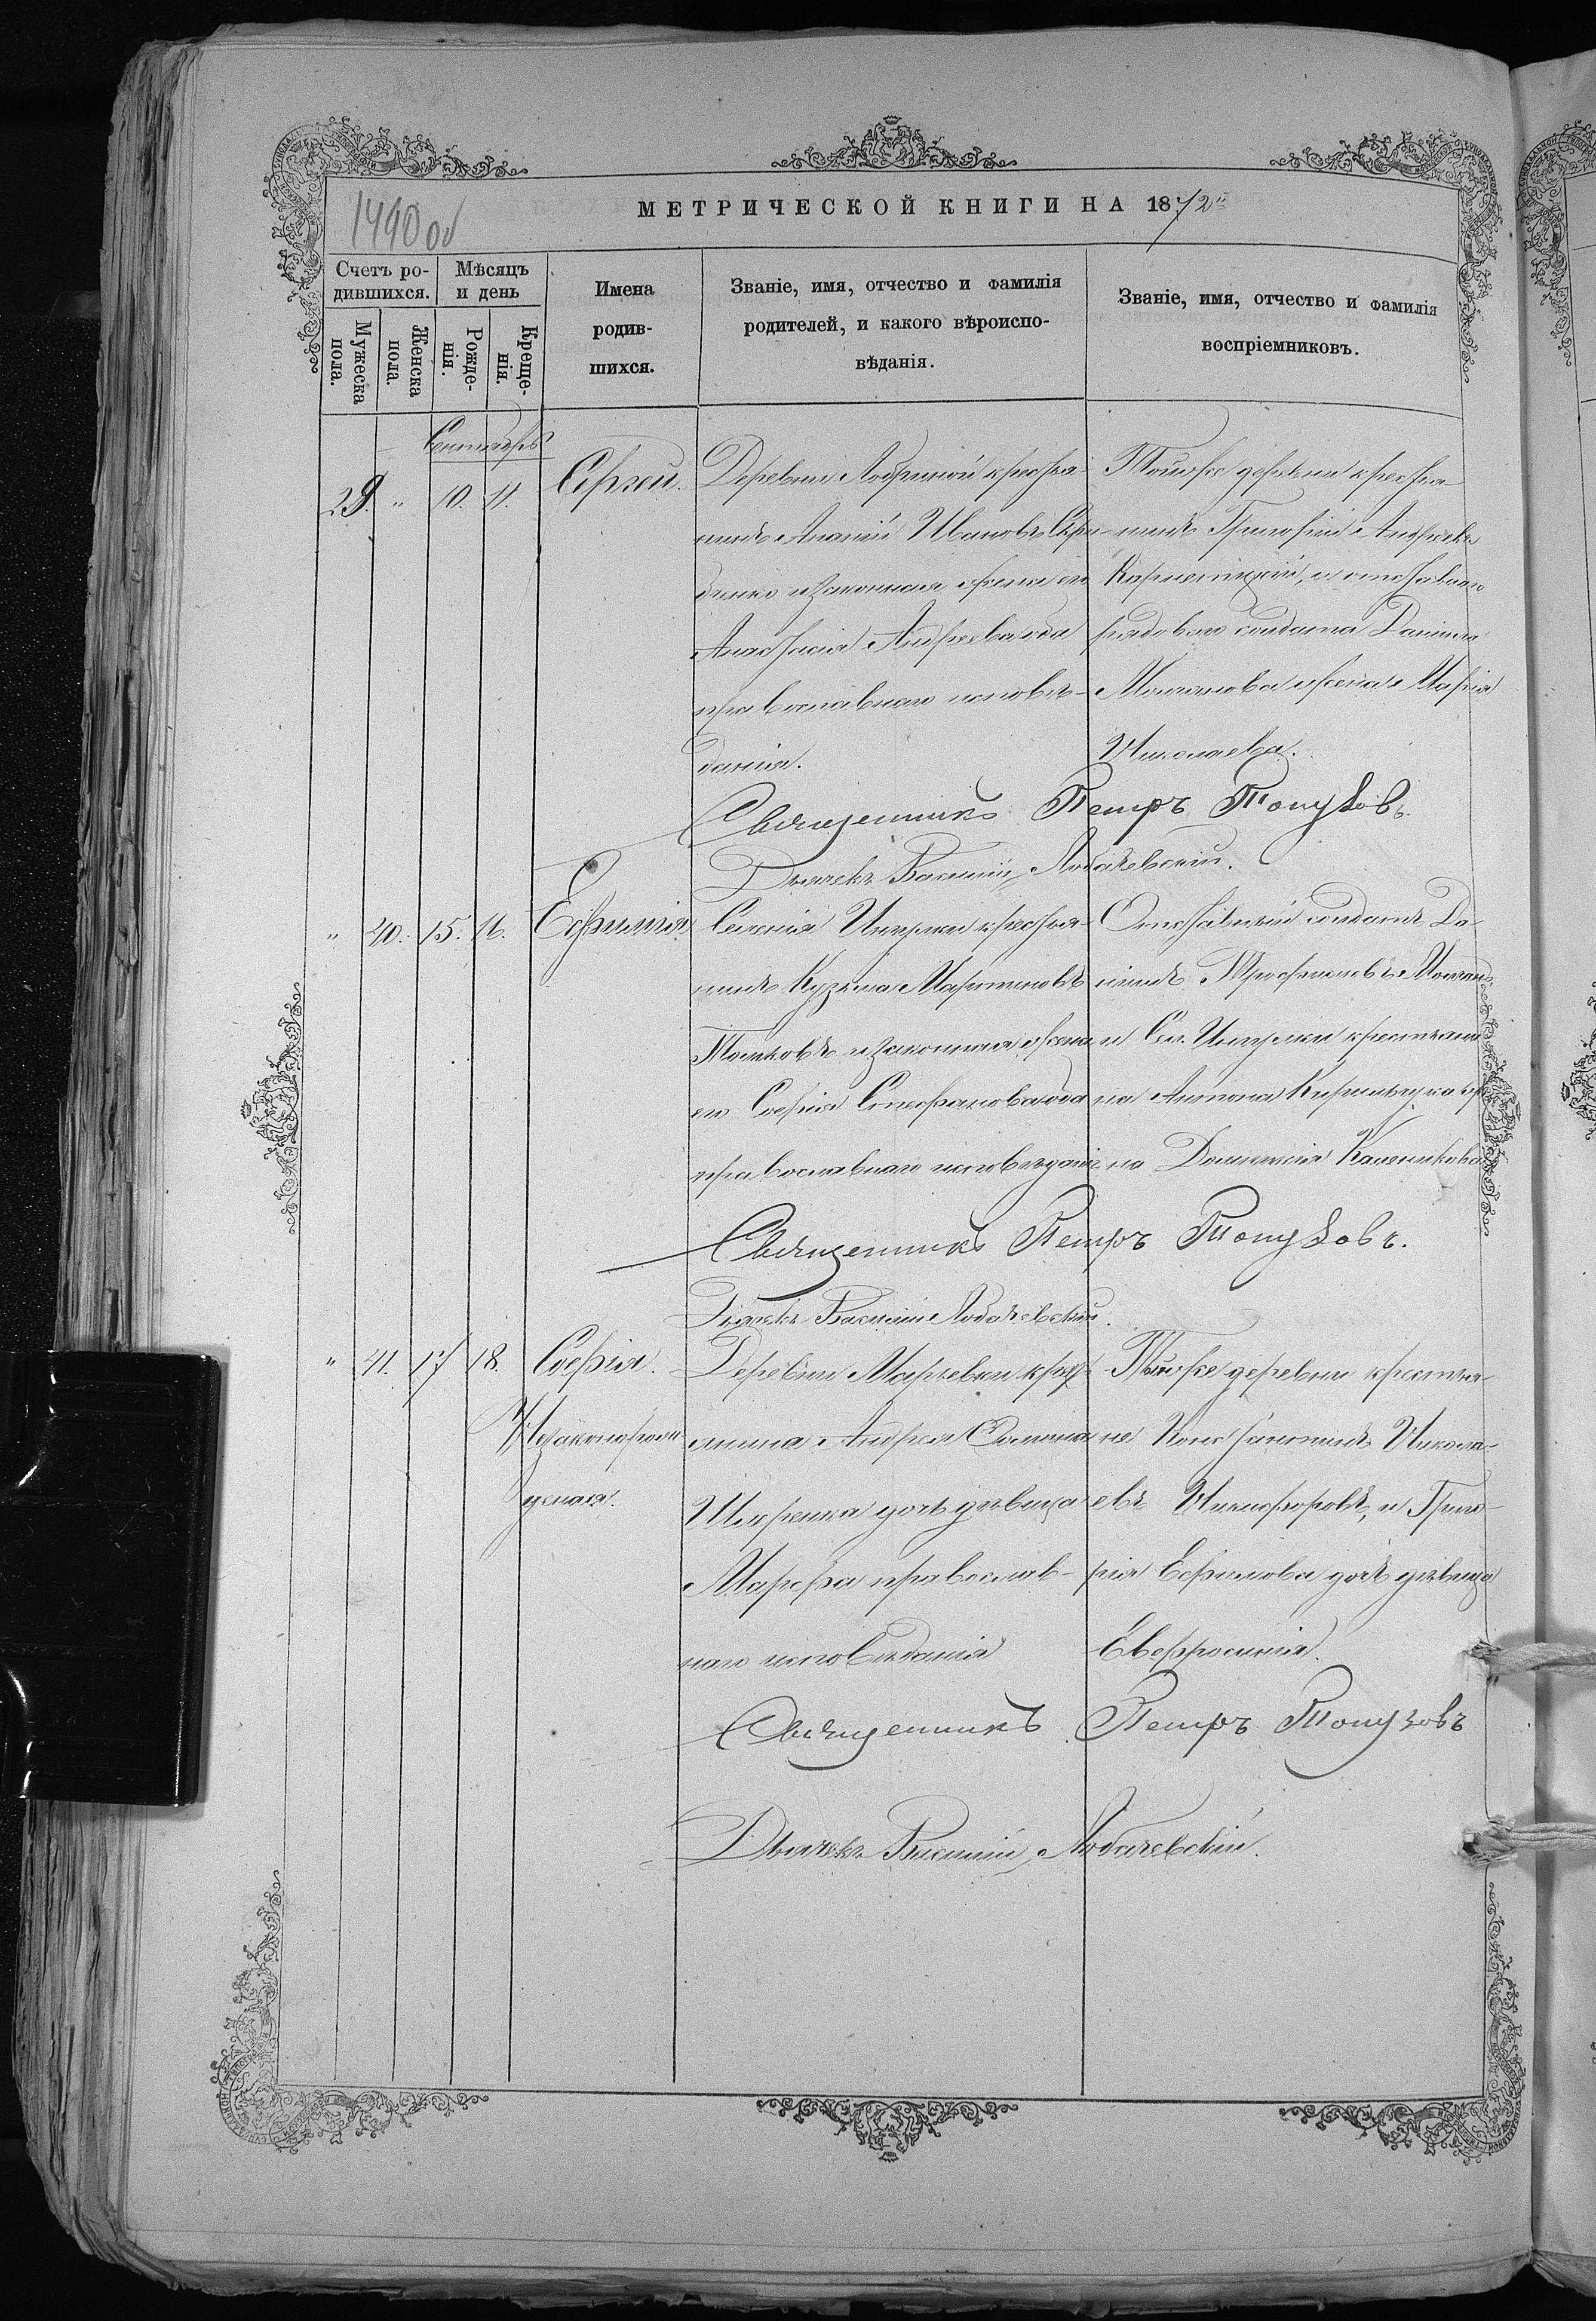 1490 об
МЕТРИЧЕСКОЙ КНИГИ НА 1872й
Счетъ ро-
дившихся.
Мужеска
пола.
Женска
пола.
Мѣсяцъ
и день
Рожде-
нія.
Креще-
нія.
Имена
родив-
шихся.
Званіе, имя, отчество и фамилія
родителей, и какого вѣроиспо-
вѣданія.
Званіе, имя, отчество и фамилія
воспріемниковъ.
Сентябрь
29. " 10. 11.
Сергій.
Деревни крестья-
нинъ Ананій Ивановъ
и законная жена его
Анастасія Андреева оба
православнаго исповѣ-
данія.
Тойже деревни крестья-
нинъ Григорій Андреевъ
и отставного
рядового солдата Даніила
жена Марія
Николаева.
Священникъ Петръ Топузовъ.
Дьячекъ Василій Лобачевскій.
" 40. 15. 16.
Ефимія
Селенія крестья-
нинъ Кузьма Мартиновъ
и законная жена
его Софія Стефанова оба
православнаго исповѣданія
Отставной солдатъ Да-
ніилъ Трофимовъ
и Сел. крестьяни-
на Антона
на Домникія
Священникъ Петръ Топузовъ.
Дьячекъ Василій Лобачевскій.
" 41. 17 18.
Софія.
Незаконорож-
денная.
Деревни крестья-
нина Андрея
дочь дѣвица
Марфа православ-
наго исповѣданія
Тойже деревни крестья-
не Константинъ Никола-
евъ Никифоровъ, и Григо-
рія Ефимова дочь дѣвица
Евфросинія.
Священникъ Петръ Топузовъ
Дьячекъ Василій Лобачевскій.